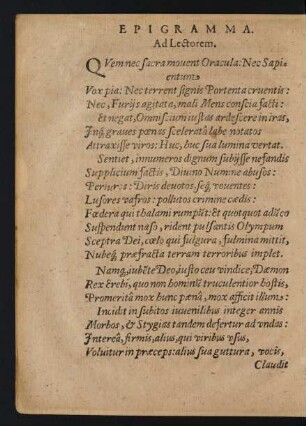 EPIGRAMMA.
Ad Lectorem.
QVem nec sacra mouent Oracula: Nec Sapi-
entum
Vox pia: Nec terrent signis Portenta cruentis:
Nec, Furijs agitata, mali Mens conscia facti:
Et negat, Omnis cum iustas ardescere in iras,
Inq́ graues pœnas scelerata labe notatos
Attraxisse viros: Huc, huc sua lumina vertat.
Sentiet, innumeros dignum subijsse nefandis
Supplicium factis, Diuino Numine abusos:
Periuros: Diris deuotos seq́, vouentes:
Lusores vafros: pollutos crimine cædis:
Fœdera qui thalami rumpūt: Et quotquot adūco
Suspendunt naso, rident pulsantis Olympum
Sceptra Dei, cœlo qui fulgura, fulmina mittit,
Nubeq́, præfracta terram terroribus implet.
Namq́, iubēte Deo, iusto ceu vindice, Dæmon
Rex Erebi, quo non hominū truculentior hostis,
Promeritā mox hunc pœnā, mox afficit illum:
Incidit in subitos iuuenilibus integer annis
Morbos, & Stygias tandem defertur ad vndas:
Intereà, firmis, alius, qui viribus vsus,
Voluitur in præceps: alius sua guttura, vocis,
Claudit